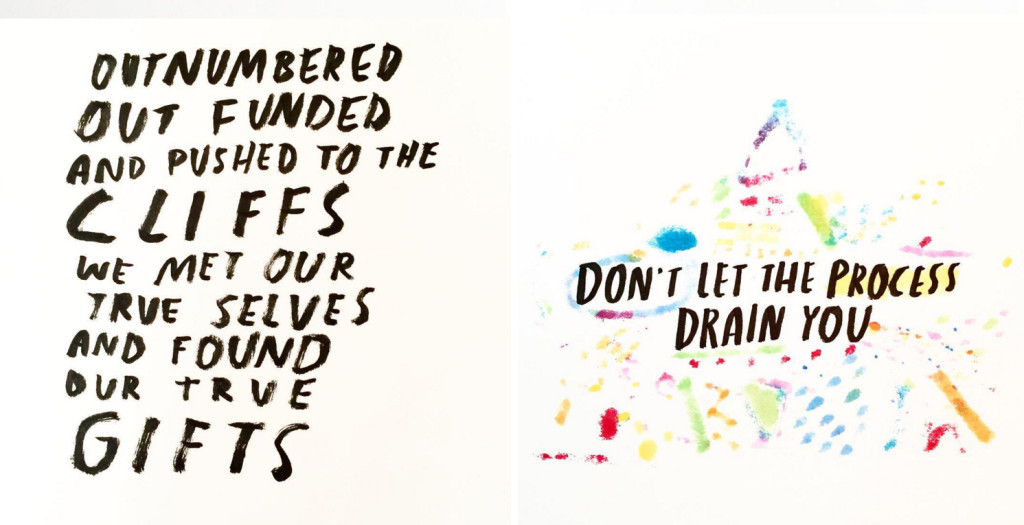 OUTNUMBERED
OUT FUNDED
AND PUSHED TO THE
CLIFFS
WE MET OUR
TRUE SELVES
AND FOUND
OUR TRUE
GIFTS
DON'T LET THE PROCESS
DRAIN YOU